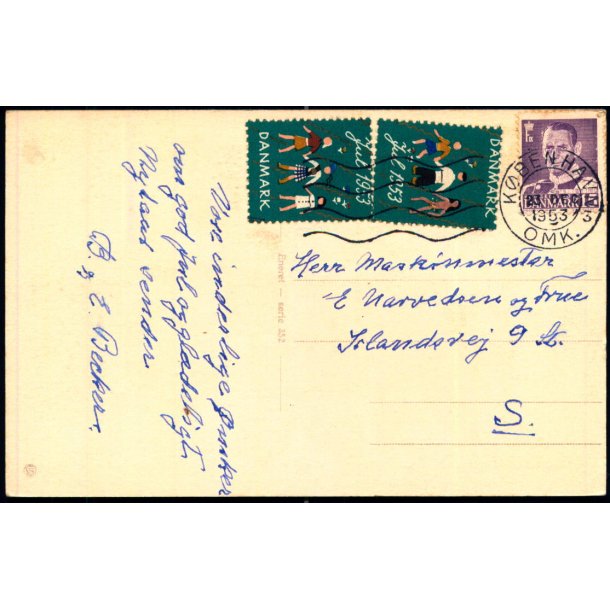 DANMARK
Jul 1953
Jul 1953
DANMARK
KØBENHAVN
23. DEC.
1953
OMK.
Vore inderlige Ønsker
om god Jul og glædeligt
Nytaar sender
B. & E. Becker.
Eneret — serie 352
Herr Maskinmester
E Narvedsen og Frue
Islandsvej 9 St.
S.